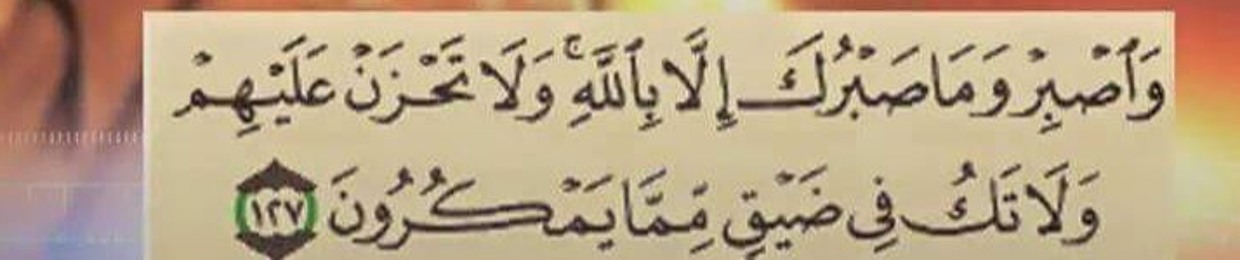 وَٱصۡبِرۡ وَمَا صَبۡرُكَ إِلَّا بِٱللَّهِۚ وَلَا تَحۡزَنۡ عَلَيۡهِمۡ
وَلَا تَكُ فِي ضَيۡقٖ مِّمَّا يَمۡكُرُونَ ١٢٧